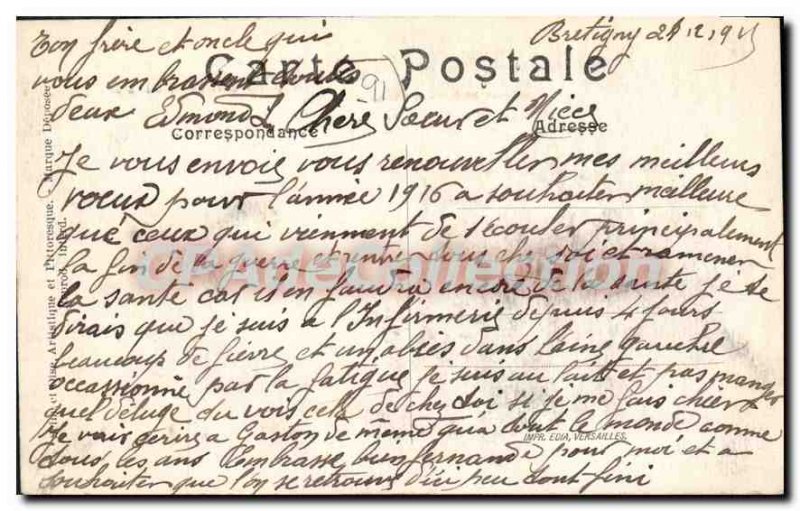 Bretigny 24, 12, 915
Carte Postale
Correspondance
Adresse
Chère Soeur et Nièce
Je vous envoie vous renouveller mes meilleurs
voeux pour l'année 1916 a souhaiter meilleure
que ceux qui viennent de s'écouler principalement
la fin de la guerre et rentrer tous chez soi et ramener
la santé car il en faudra encore de la santé je te
dirais que je suis a l'Infirmerie depuis 4 jours
beaucoup de fièvre et un abcès dans l'aine gauche
occassionné par la fatigue je suis au lait et pas manger
quel déluge tu vois cela de chez toi si je me fais chier
Je vais écrire a Gaston de même qu'a tout le monde comme
tous les ans Embrasse bien fernande pour moi et a
souhaiter que l'on se retrouve d'ici peu tout fini
Ton frère et oncle qui
vous embrassent toutes
deux Edmond
91
CPArteCollection
Edité et Artistique et Pittoresque. - Marque Déposée
IMPR. EDIA, VERSAILLES